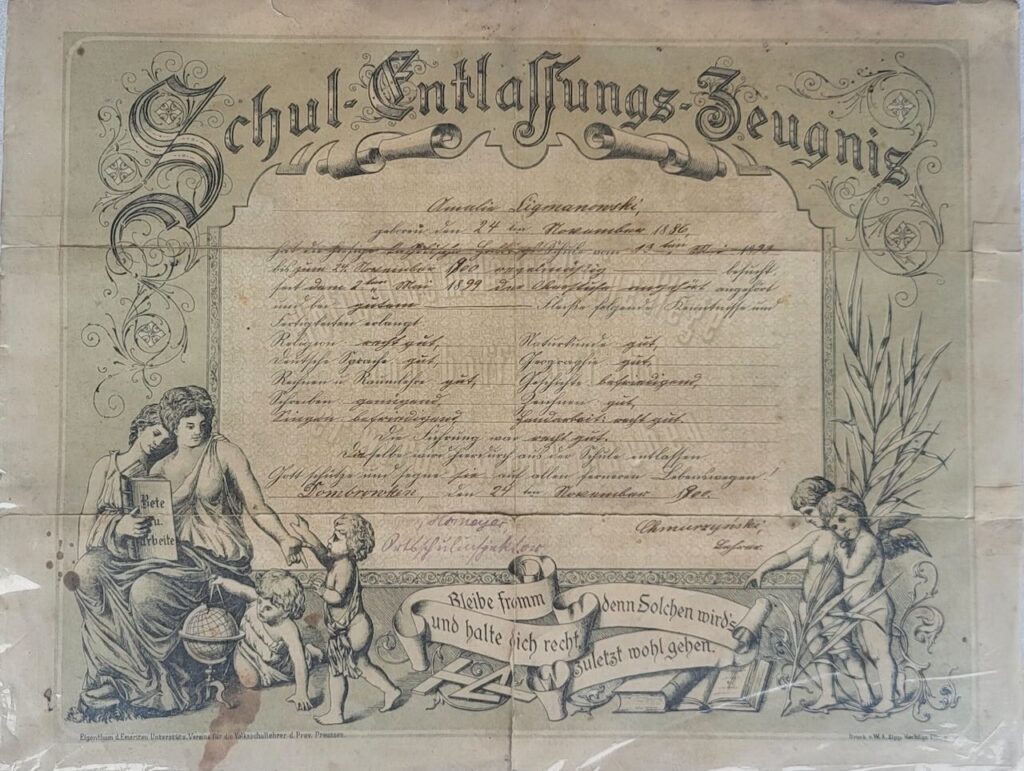 Schul-Entlassungs-Zeugnis
Amalie Ligmanowski,
geboren den 24 ten November 1886,
hat die hiesige Schule vom 13 ten Mai
bis zum 24. November 1900 regelmäßig besucht,
seit dem 2 ten Mai 1899 der Oberstufe angehört angehört
und bei gutem Fleiße folgende Kenntnisse und
Fertigkeiten erlangt.
Religion: recht gut,
Naturkunde gut,
Deutsche Sprache: gut,
Geographie gut,
Rechnen u Raumlehre gut,
Geschichte befriedigend,
Schreiben genügend,
Zeichnen gut,
Singen befriedigend
Handarbeit: recht gut.
Die Führung war recht gut.
Dieselbe wird hierdurch aus der Schule entlassen
Gott schütze und segne sie auf allen ferneren Lebenswegen!
Dombrowken, den 24 ten November 1900.
Ortsschulinspektor
Chmurzyński,
Lehrer.
Bete
u.
arbeite
Bleibe fromm
und halte dich recht,
denn Solchen wird's
zuletzt wohl gehen.
Eigenthum d. Emeriten Unterstütz. Vereins für die Volksschullehrer d. Prov. Preussen.
Druck v. W. A.